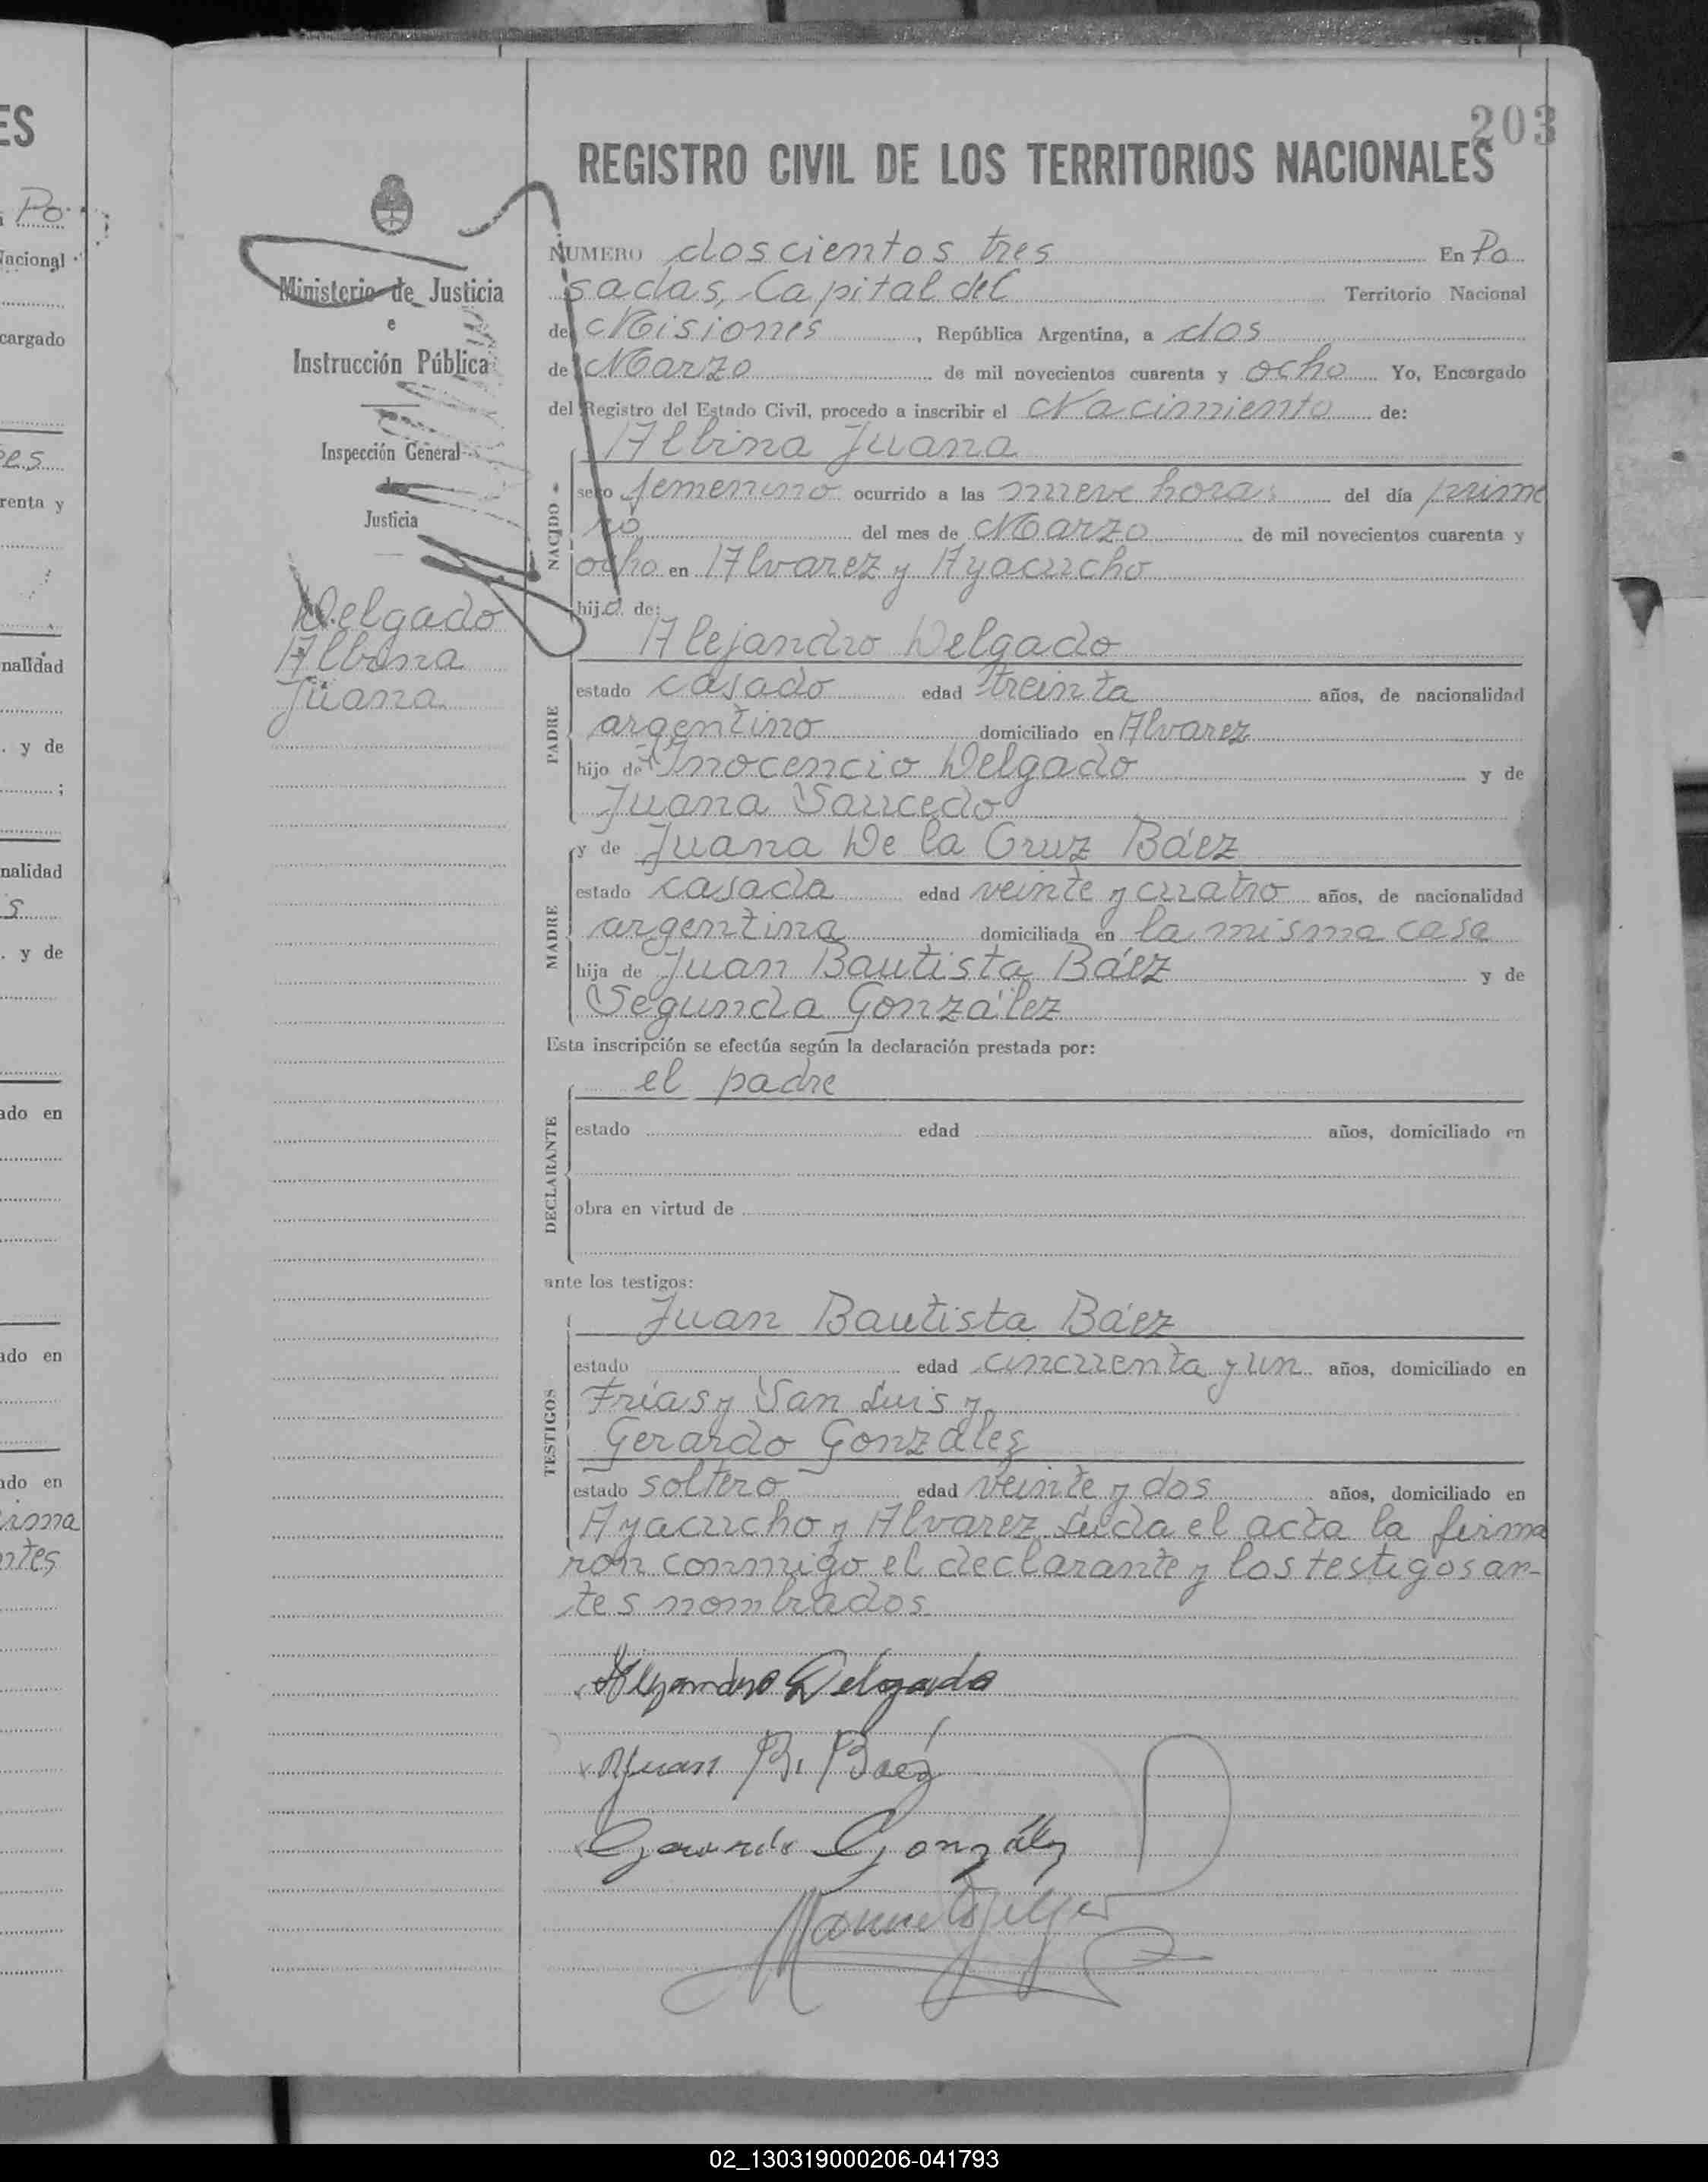 203
REGISTRO CIVIL DE LOS TERRITORIOS NACIONALES
Ministerio de Justicia
e
Instrucción Pública
Inspección General
de
Justicia
Delgado
Albina
Juana
NUMERO doscientos tres En Po
sadas, Capital del Territorio Nacional
de Misiones, República Argentina, a dos
de Marzo de mil novecientos cuarenta y ocho Yo, Encargado
del Registro del Estado Civil, procedo a inscribir el Nacimiento de:
NACIDO
Albina Juana
sexo femenino ocurrido a las nueve horas del día prime
ro del mes de Marzo de mil novecientos cuarenta y
ocho en Alvarez y Ayacucho
hija de:
PADRE
Alejandro Delgado
estado casado edad treinta años, de nacionalidad
argentino domiciliado en Alvarez
hijo de Inocencio Delgado y de
Juana Saucedo
MADRE
y de Juana De la Cruz Báez
estado casada edad veinte y cuatro años, de nacionalidad
argentina domiciliada en la misma casa
hija de Juan Bautista Báez y de
Segunda González
Esta inscripción se efectúa según la declaración prestada por:
DECLARANTE
el padre
estado edad años, domiciliado en
obra en virtud de
ante los testigos:
TESTIGOS
Juan Bautista Báez
estado edad cincuenta y un años, domiciliado en
Frías y San Luis y
Gerardo González
estado soltero edad veinte y dos años, domiciliado en
Ayacucho y Alvarez Leída el acta la firma
ron conmigo el declarante y los testigos an-
tes nombrados
Alejandro Delgado
Juan B. Báez
Gerardo González
Manuel
ES
Po
Nacional
cargado
es
renta y
nalidad
. y de
;
nalidad
s
. y de
ado en
ado en
ado en
isma
ntes
02_130319000206-041793